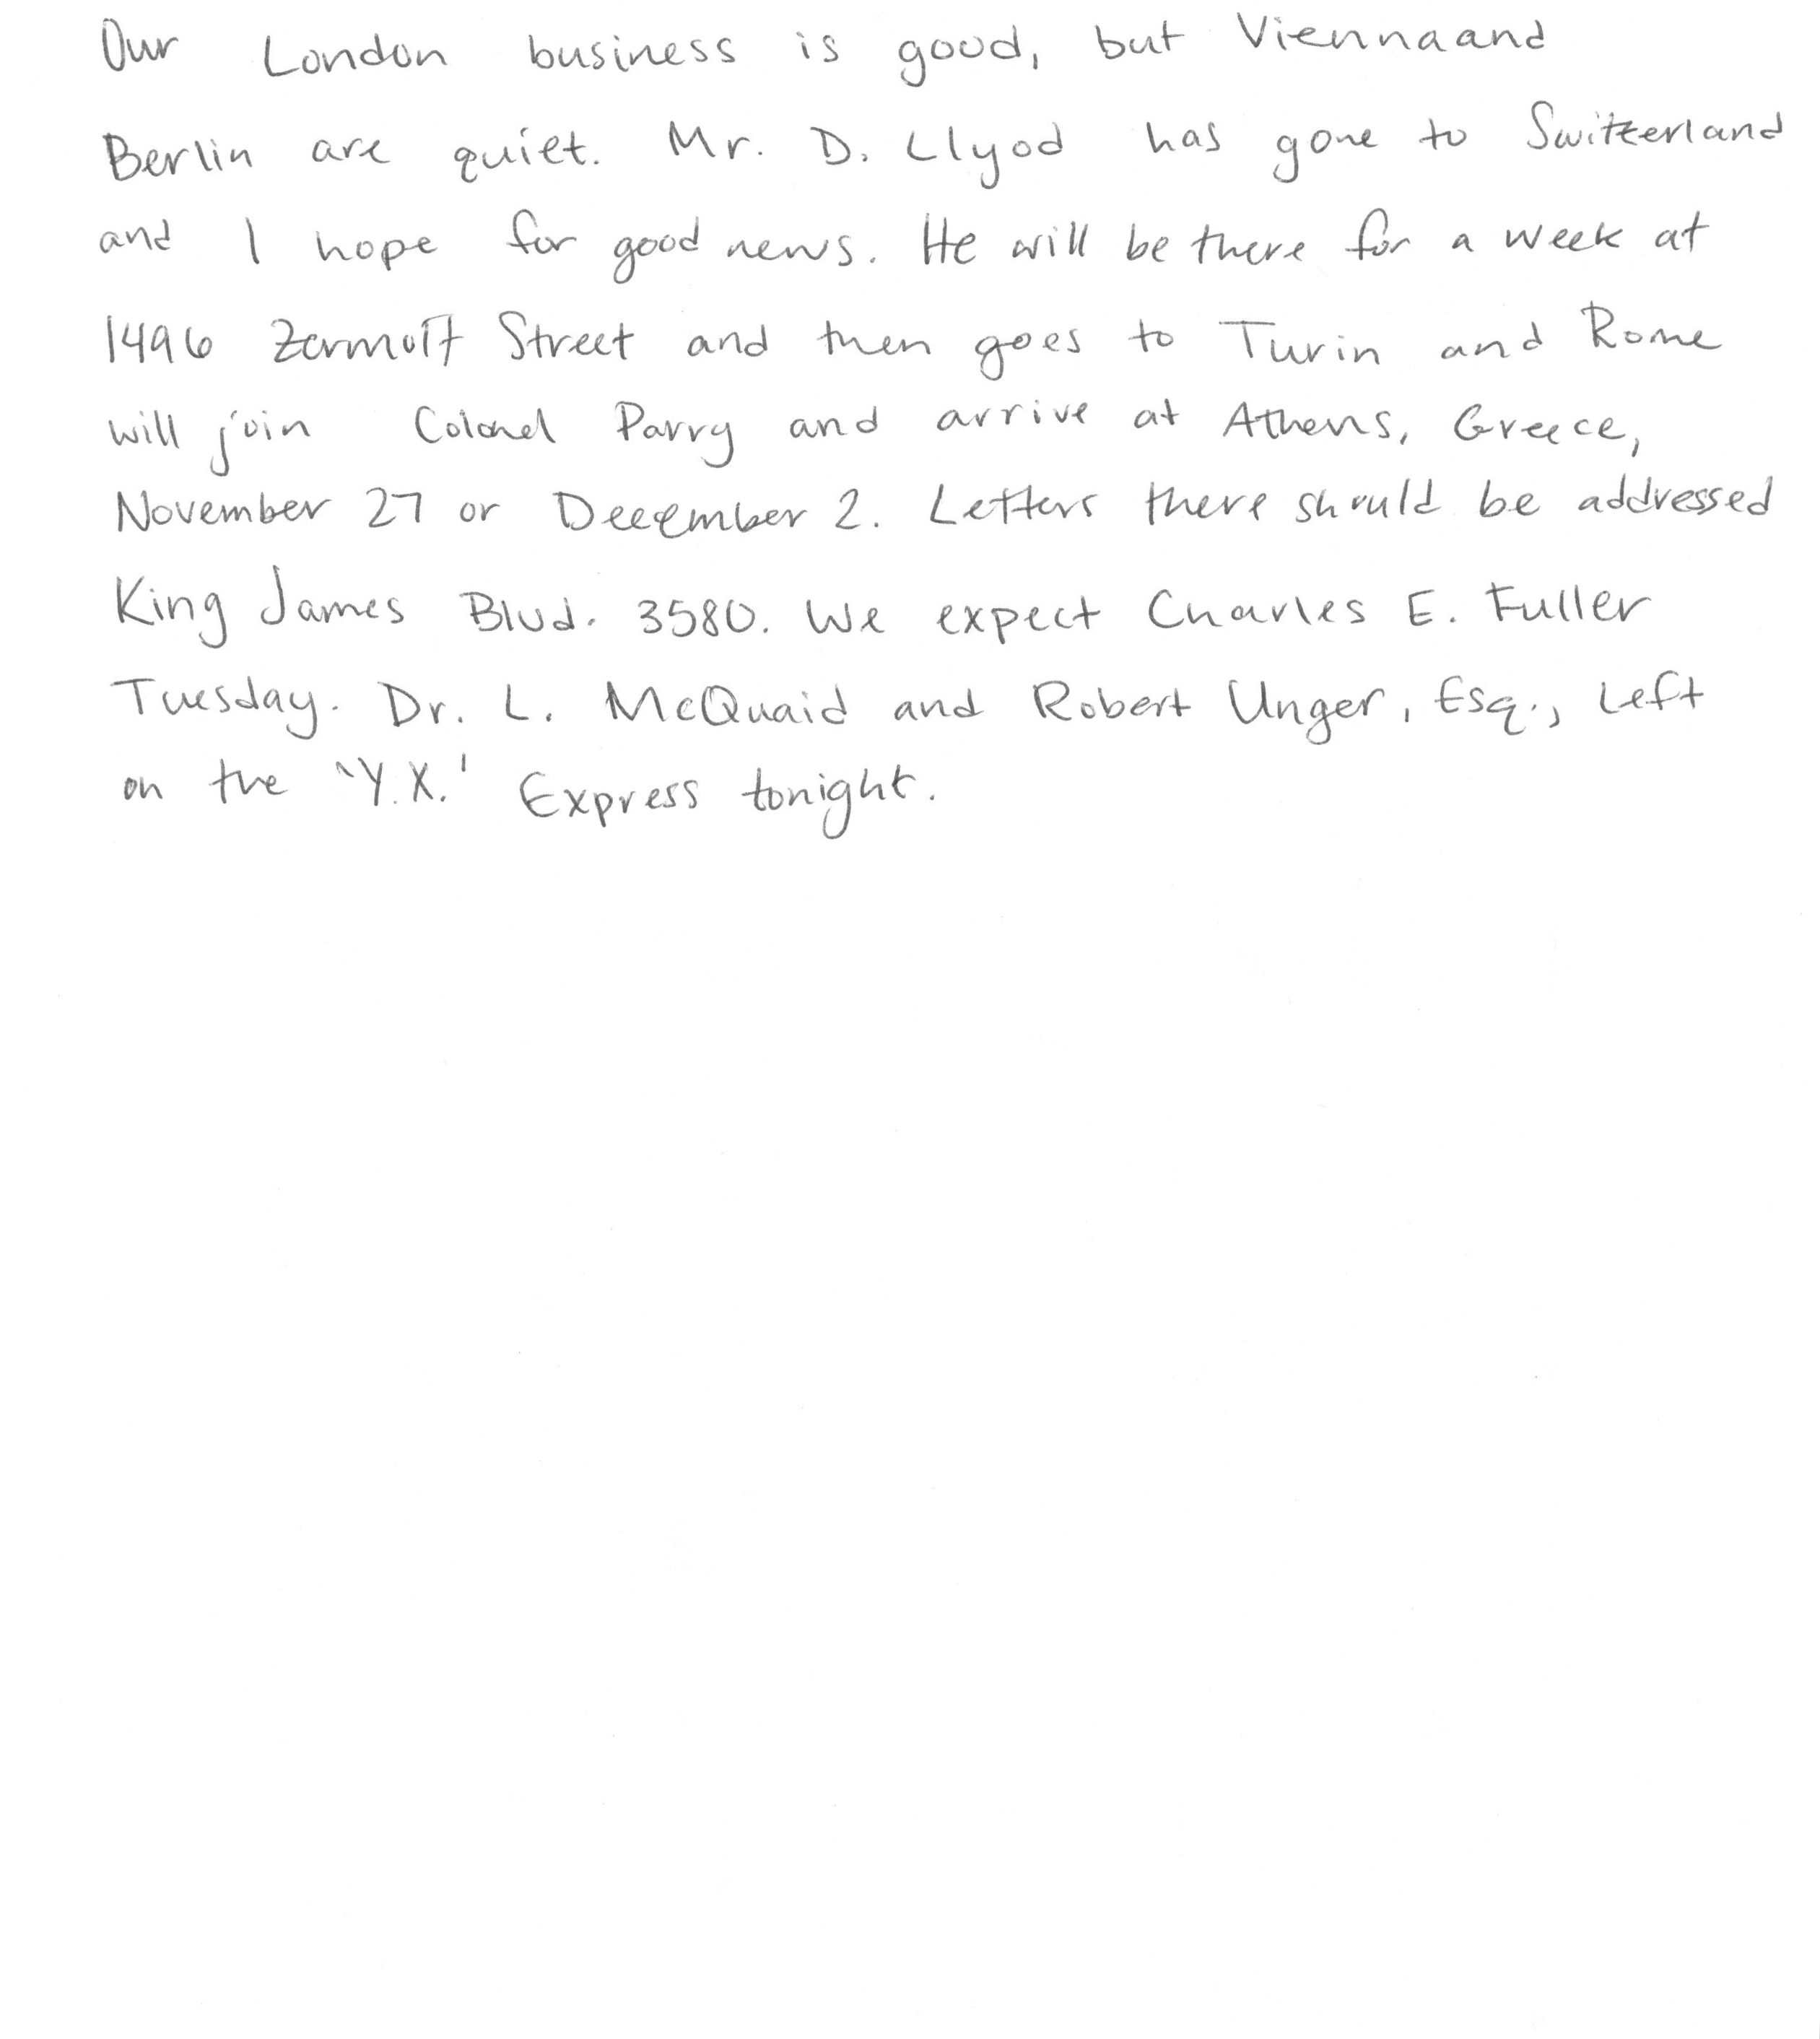 Our London business is good, but Vienna and
Berlin are quiet. Mr. D. Llyod has gone to Switzerland
and I hope for good news. He will be there for a week at
1496 Zermott Street and then goes to Turin and Rome
will join Colonel Parry and arrive at Athens, Greece,
November 27 or December 2. Letters there should be addressed
King James Blvd. 3580. We expect Charles E. Fuller
Tuesday. Dr. L. McQuaid and Robert Unger, Esq., left
on the 'Y.X.' Express tonight.